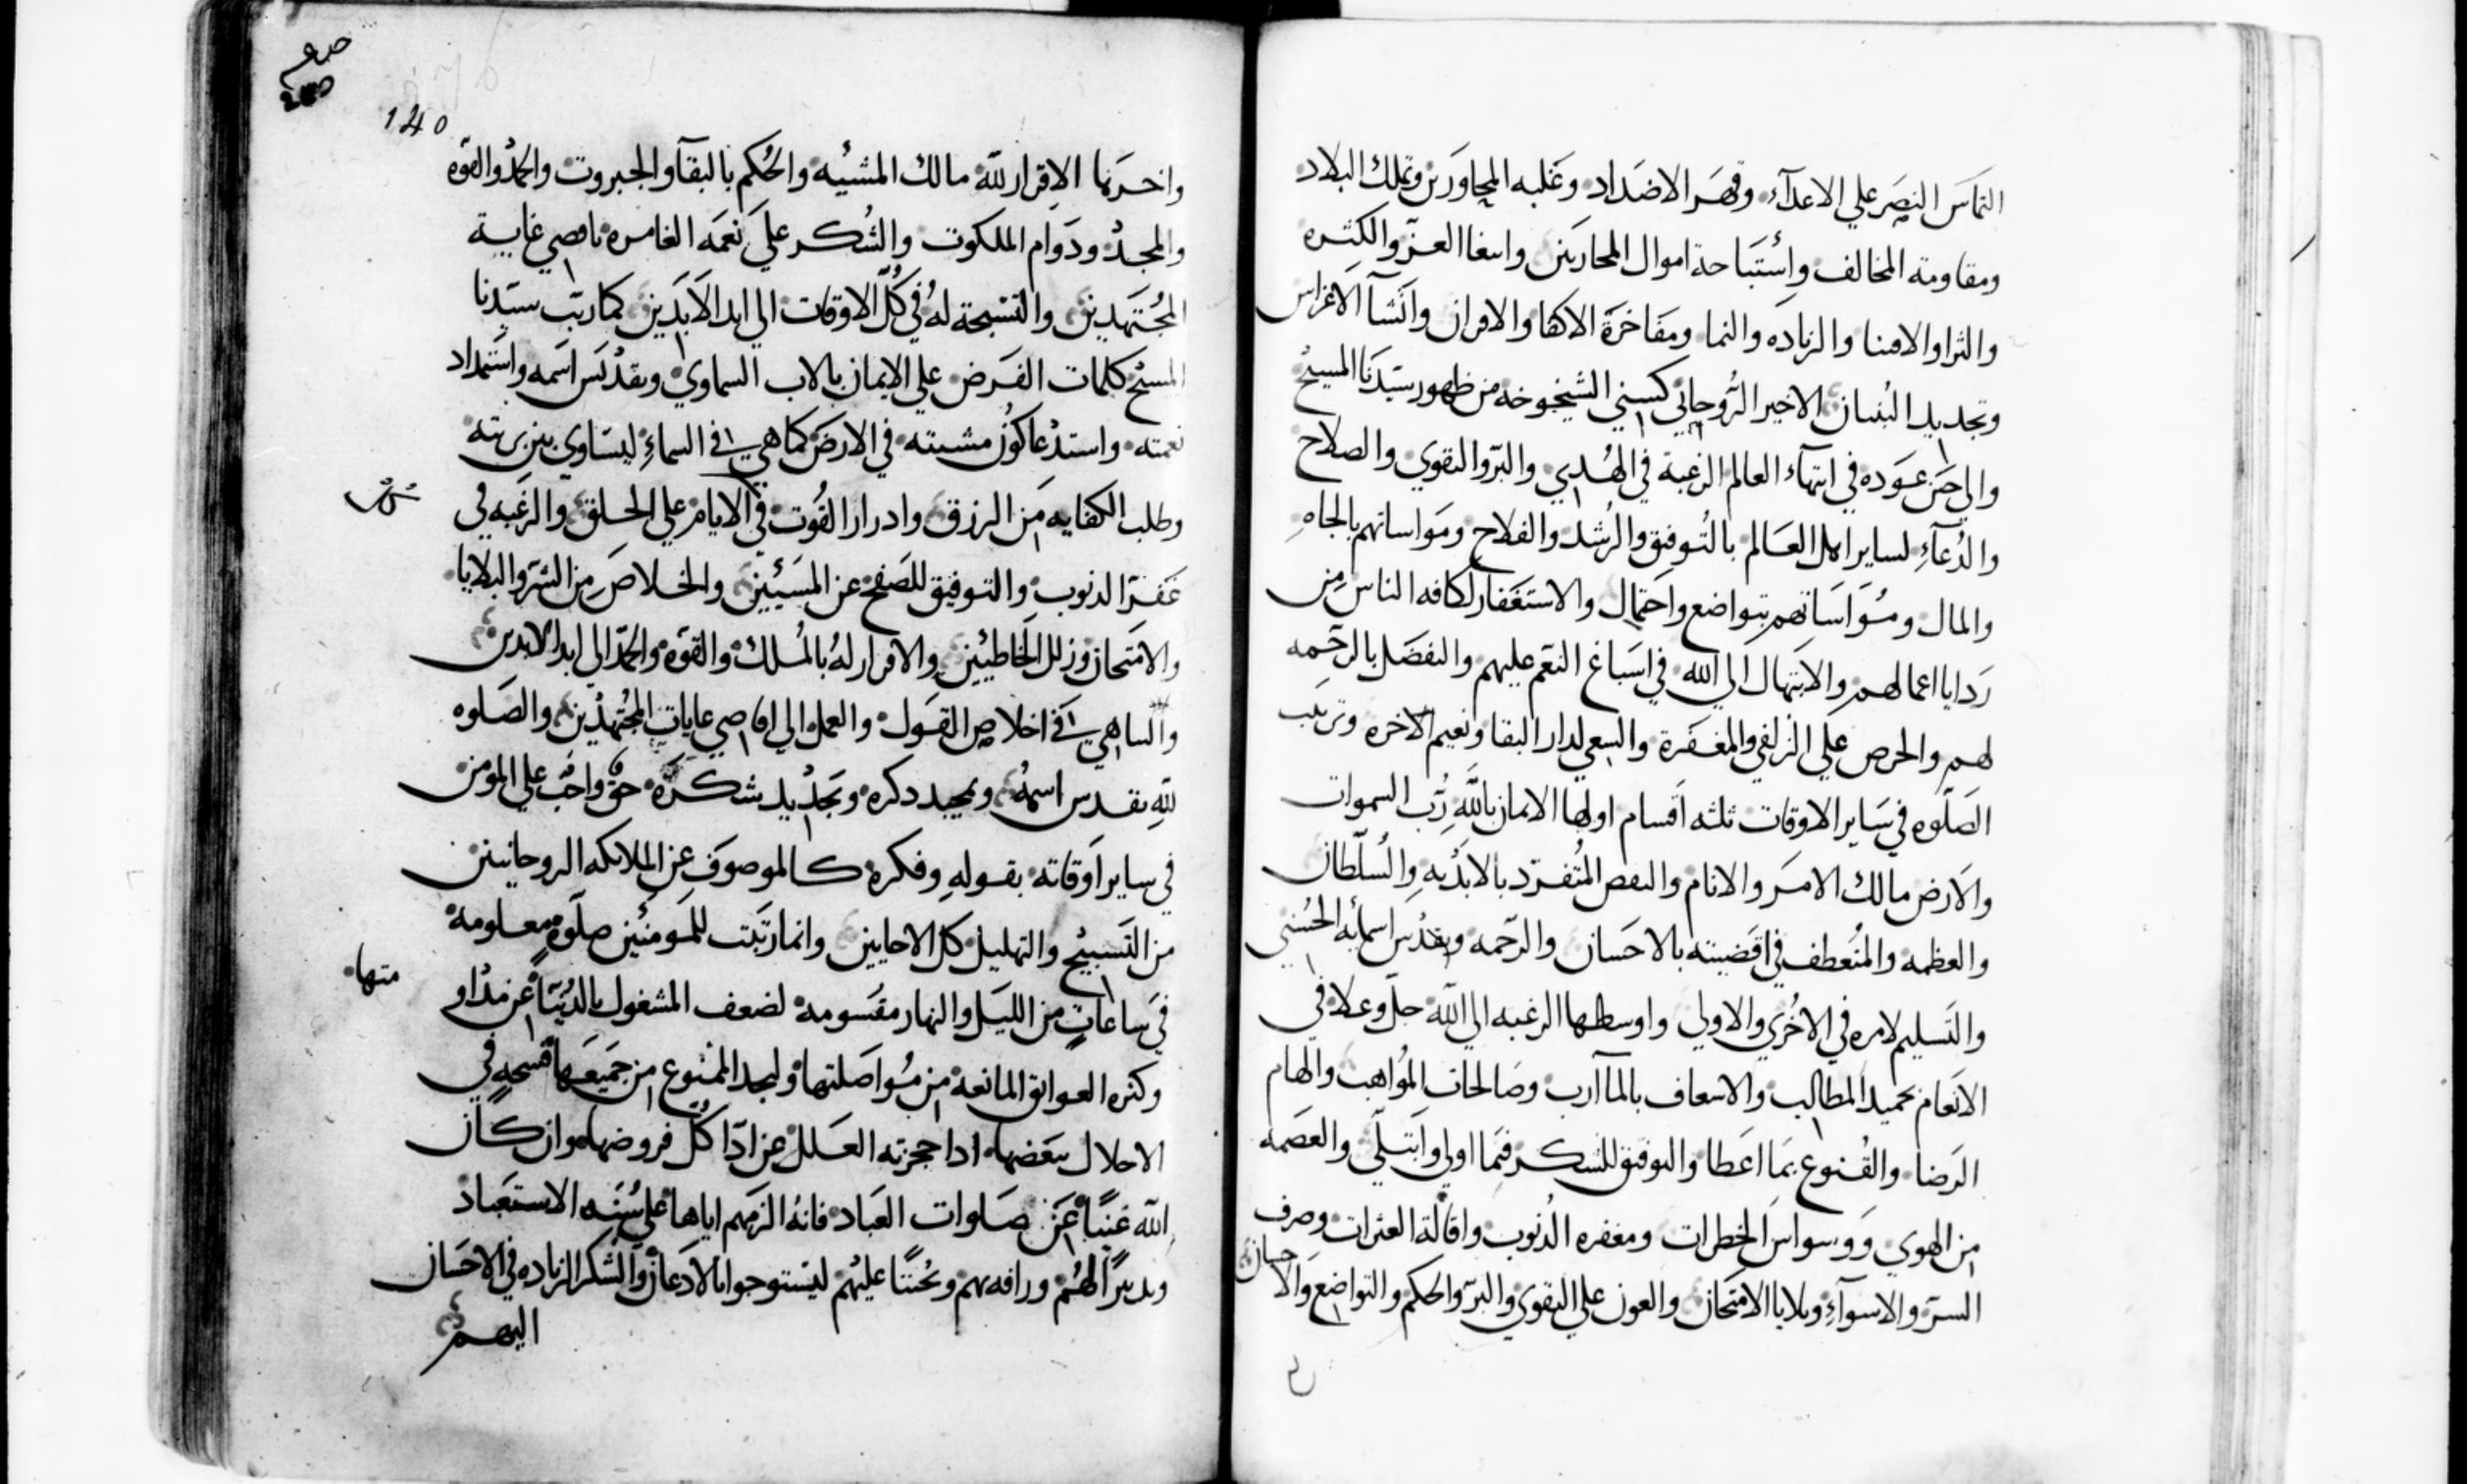 التماس النصر علي الاعدآء وقهر الاضداد وغلبه المجاورين وتملك البلاد
ومقاومة المخالف واستباحة اموال المحاربين وابتغا العز والكثره
والثرا والاقتنا والزياده والنما ومفاخرة الاكفا والاقران وانشآ الاغراس
وتجديد البنيان الاخير الروحاني كسني الشيخوخه من ظهور سيدنا المسيح
والي حين عوده في انتهآء العالم الرغبة في الهدي والبر والتقوي والصلاح
والدعآء لساير اهل العالم بالتوفيق والرشد والفلاح ومواساتهم بالجاه
والمال ومساواتهم بتواضع واحتمال والاستغفار لكافه الناس من
ردايا اعمالهم والابتهال الي الله في اسباغ النعم عليهم والتفضل بالرحمه
لهم والحرص علي الزلفي والمغفرة والسعي لدار البقا ونعيم الاخره وترتيب
الصلوه في ساير الاوقات ثلثه اقسام اولها الايمان بالله رب السموات
والارض مالك الامر والانام المتفرد بالابديه والسلطان
والعظمه والمنعطف في اقضيته بالاحسان والرحمه وتقديس اسمايه الحسني
والتسليم لامره في الاخري والاولي واوسطها الرغبه الي الله جل وعلا في
الانعام بحميد المطالب والاسعاف بالمآرب وصالحات المواهب والهام
الرضا والقنوع بما اعطا والتوفيق للشكر فيما اولي وابتلي والعصمه
من الهوي ووسواس الخطرات ومغفره الذنوب واقالة العثرات وصرف
السر والاسوآء وبلايا الامتحان والعون علي التقوي والبر والحكم والتواضع والاحسان
140
واخرتها الاقرار لله مالك المشيه والحكم بالبقآ والجبروت والحمد والقوه
والمجد ودوام الملكوت والشكر علي نعمه الغامره باقصي غاية
المجتهدين والتسبحة له في كل الاوقات الي ابد الابدين كما رتب سيدنا
المسيح كلمات الفرض علي الايمان بالاب السماوي وتقديس اسمه واستمداد
نعمته واستدعا كون مشيته في الارض كما هي في السماء ليساوي بين بريته
وطلب الكفايه من الرزق وادرار القوت في الايام علي الخلق والرغبه في
غفر الذنوب والتوفيق للصفح عن المسيئين والخلاص من الشر والبلايا
والامتحان وزلل الخاطيين والاقرار له بالملك والقوه والحمد الي ابد الابدين
والتناهي في اخلاص القول والعمل الي اقاصي غايات المجتهدين والصلوه
لله بتقديس اسمه وتمجيد ذكره وتجديد شكره حق واجب علي المومن
في ساير اوقاته بقوله وفكره كالموصوف عن الملايكه الروحانيين
من التسبيح والتهليل كل الاحايين وانما رتبت للمومنين صلوه معلومه
في ساعات من الليل والنهار مقسومه لضعف المشغول بالدنيا عن مداو
متها
وكثره العوايق المانعه من مواصلتها وليجد الممنوع من جميعها فسحه في
الاخلال ببعضها اذا حجزته العلل عن ادا كل فروضها وان كان
الله غنيا عن صلوات العباد فانه الزمهم اياها علي سنه الاستعباد
وتدبيرا لهم ورافه بهم وتحننا عليهم ليستوجبوا بالادعان والشكر الزياده في الاحسان
اليهم